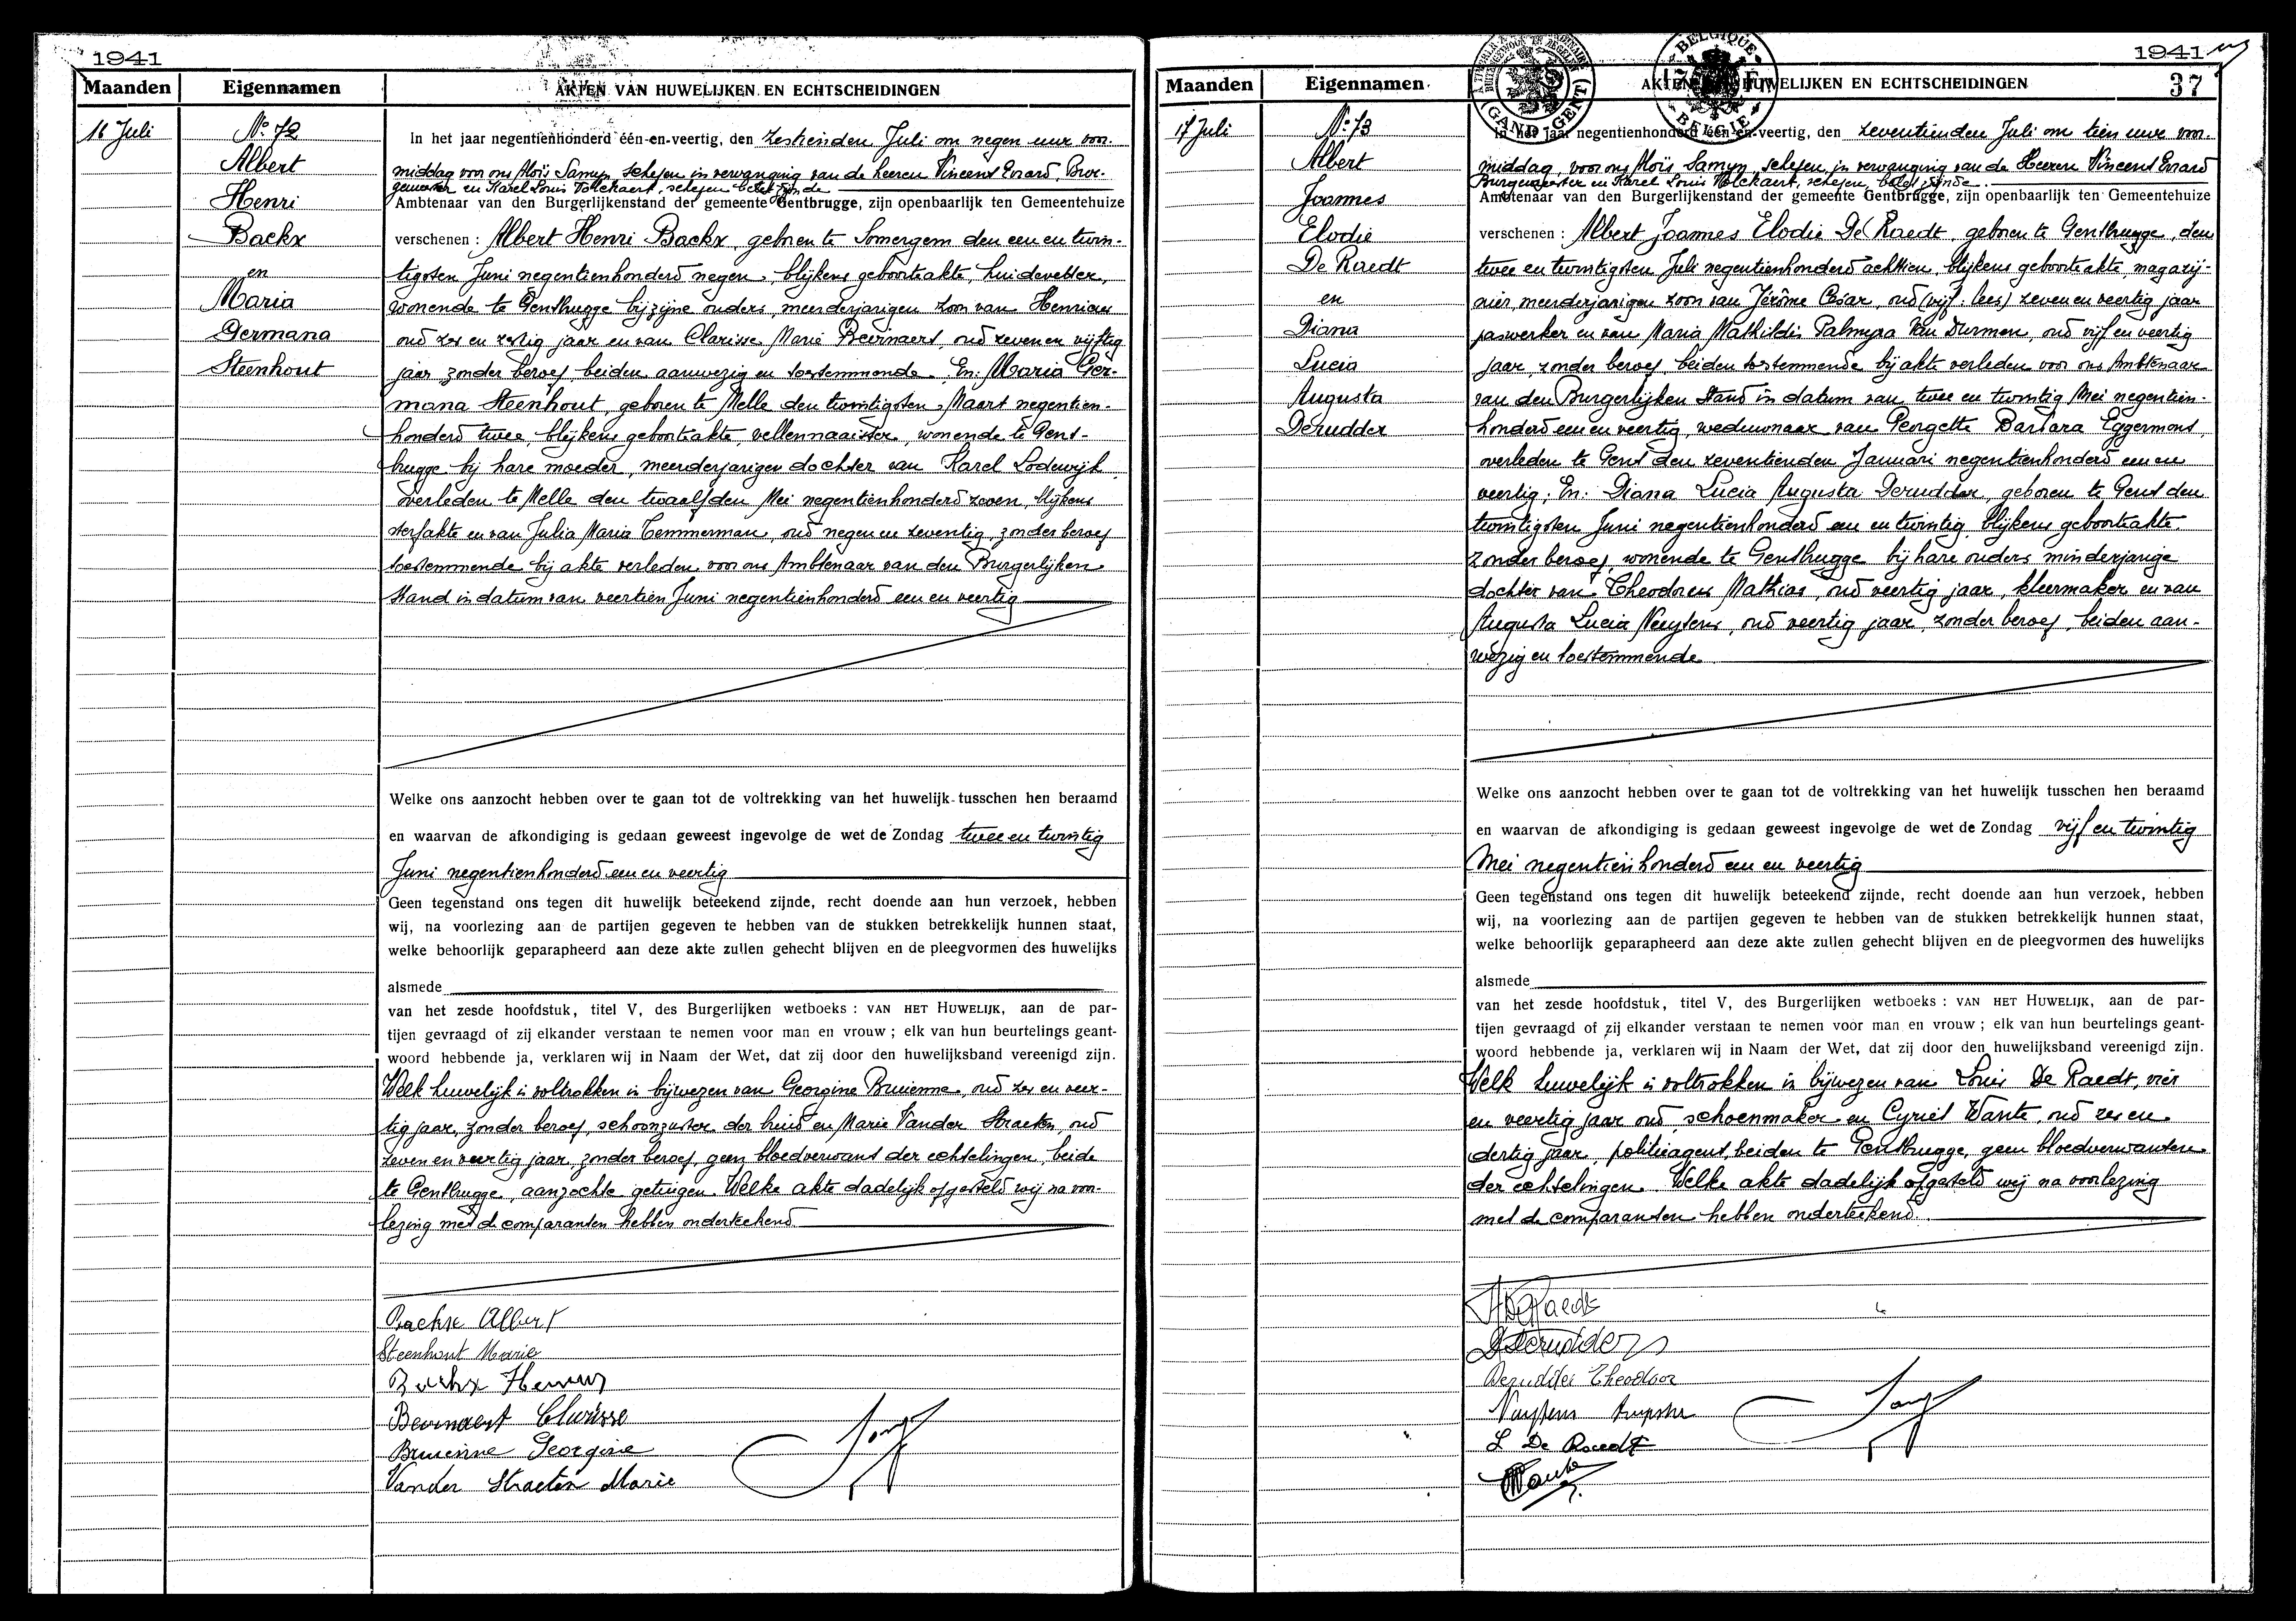 1941
Maanden Eigennamen AKTEN VAN HUWELIJKEN EN ECHTSCHEIDINGEN
16 Juli
No 72
Albert
Henri
Backx
en
Maria
Germana
Steenhout
In het jaar negentienhonderd één-en-veertig, den zestienden Juli om negen uur voor-
middag voor ons Aloïs Samyn schepen in vervanging van de heeren Vincent Evrard, Bur-
gemeester en Karel Louis Volckaert, schepen belet zijnde
Ambtenaar van den Burgerlijkenstand der gemeente Gentbrugge, zijn openbaarlijk ten Gemeentehuize
verschenen : Albert Henri Backx, geboren te Somergem den een en twin-
tigsten Juni negentienhonderd negen, blijkens geboorteakte, huidevetter,
wonende te Gentbrugge bij zijne ouders, meerderjarigen zoon van Henricus
oud zes en zestig jaar en van Clarisse Marie Beirnaert, oud zeven en vijftig
jaar zonder beroep, beiden aanwezig en toestemmende. En: Maria Ger-
mana Steenhout, geboren te Melle den twintigsten Maart negentien-
honderd twee, blijkens geboorteakte, vellennaaister, wonende te Gent-
brugge bij hare moeder, meerderjarigen dochter van Karel Lodewijk
overleden te Melle den twaalfden Mei negentienhonderd zeven, blijkens
sterfakte en van Julia Maria Temmerman, oud negen en zeventig, zonder beroep
toestemmende bij akte verleden voor ons Ambtenaar van den Burgerlijken
Stand in datum van veertien Juni negentienhonderd een en veertig
Welke ons aanzocht hebben over te gaan tot de voltrekking van het huwelijk tusschen hen beraamd
en waarvan de afkondiging is gedaan geweest ingevolge de wet de Zondag twee en twintig
Juni negentienhonderd een en veertig
Geen tegenstand ons tegen dit huwelijk beteekend zijnde, recht doende aan hun verzoek, hebben
wij, na voorlezing aan de partijen gegeven te hebben van de stukken betrekkelijk hunnen staat,
welke behoorlijk geparapheerd aan deze akte zullen gehecht blijven en de pleegvormen des huwelijks
alsmede
van het zesde hoofdstuk, titel V, des Burgerlijken wetboeks : VAN HET HUWELIJK, aan de par-
tijen gevraagd of zij elkander verstaan te nemen voor man en vrouw ; elk van hun beurtelings geant-
woord hebbende ja, verklaren wij in Naam der Wet, dat zij door den huwelijksband vereenigd zijn.
Welk huwelijk is voltrokken in bijwezen van Georgine Bruienne, oud zes en veer-
tig jaar, zonder beroep, schoonzuster der bruid en Marie Vander Straeten, oud
zeven en veertig jaar, zonder beroep, geen bloedverwant der echtelingen, beide
te Gentbrugge, aanzochte getuigen. Welke akte dadelijk opgesteld wij na voor-
lezing met de comparanten hebben onderteekend
Backx Albert
Steenhout Marie
Backx Henricus
Beirnaert Clarisse
Bruienne Georgine
Vander Straeten Marie
1941
37
Maanden Eigennamen AKTEN VAN HUWELIJKEN EN ECHTSCHEIDINGEN
(GAND-GENT)
BELGIQUE
BELGIE
17 Juli
No 73
Albert
Joannes
Elodie
De Raedt
en
Diana
Lucia
Augusta
Derudder
In het jaar negentienhonderd één-en-veertig, den zeventienden Juli om tien uur voor-
middag voor ons Aloïs Samyn, schepen, in vervanging van de Heeren Vincent Evrard
Burgemeester en Karel Louis Volckaert, schepen, belet zijnde
Ambtenaar van den Burgerlijkenstand der gemeente Gentbrugge, zijn openbaarlijk ten Gemeentehuize
verschenen : Albert Joannes Elodie De Raedt, geboren te Gentbrugge, den
twee en twintigsten Juli negentienhonderd achttien, blijkens geboorteakte, magazij-
nier, meerderjarigen zoon van Jérôme César, oud (vijf: lees) zeven en veertig jaar
jaswerker en van Maria Mathildis Palmyra Van Durmen, oud vijf en veertig
jaar, zonder beroep, beiden toestemmende bij akte verleden voor ons Ambtenaar
van den Burgerlijken Stand in datum van twee en twintig Mei negentien-
honderd een en veertig, weduwnaar van Georgette Barbara Eggermont,
overleden te Gent den zeventienden Januari negentienhonderd een en
veertig; En: Diana Lucia Augusta Derudder, geboren te Gent den
twintigsten Juni negentienhonderd een en twintig, blijkens geboorteakte,
zonder beroep, wonende te Gentbrugge bij hare ouders minderjarige
dochter van Theodorus Mathias, oud veertig jaar, kleermaker en van
Augusta Lucia Nuytens, oud veertig jaar, zonder beroep, beiden aan-
wezig en toestemmende.
Welke ons aanzocht hebben over te gaan tot de voltrekking van het huwelijk tusschen hen beraamd
en waarvan de afkondiging is gedaan geweest ingevolge de wet de Zondag vijf en twintig
Mei negentienhonderd een en veertig
Geen tegenstand ons tegen dit huwelijk beteekend zijnde, recht doende aan hun verzoek, hebben
wij, na voorlezing aan de partijen gegeven te hebben van de stukken betrekkelijk hunnen staat,
welke behoorlijk geparapheerd aan deze akte zullen gehecht blijven en de pleegvormen des huwelijks
alsmede
van het zesde hoofdstuk, titel V, des Burgerlijken wetboeks : VAN HET HUWELIJK, aan de par-
tijen gevraagd of zij elkander verstaan te nemen voor man en vrouw ; elk van hun beurtelings geant-
woord hebbende ja, verklaren wij in Naam der Wet, dat zij door den huwelijksband vereenigd zijn.
Welk huwelijk is voltrokken in bijwezen van Louis De Raedt, vier
en veertig jaar oud, schoenmaker en Cyriel Wante, oud zes en
dertig jaar, politieagent, beiden te Gentbrugge, geen bloedverwanten
der echtelingen. Welke akte dadelijk opgesteld wij na voorlezing
met de comparanten hebben onderteekend.
A De Raedt
D Derudder
Derudder Theodoor
Nuytens Augusta
L De Raedt
Wante